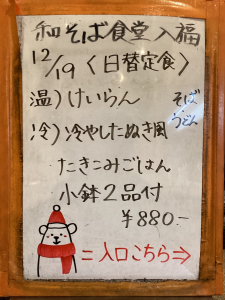 和そば食堂入福
12/19〈日替定食〉
温)けいらん そば
冷)冷やしたぬき風 うどん
たきこみごはん
小鉢2品付
¥880.-
=入口こちら⇒